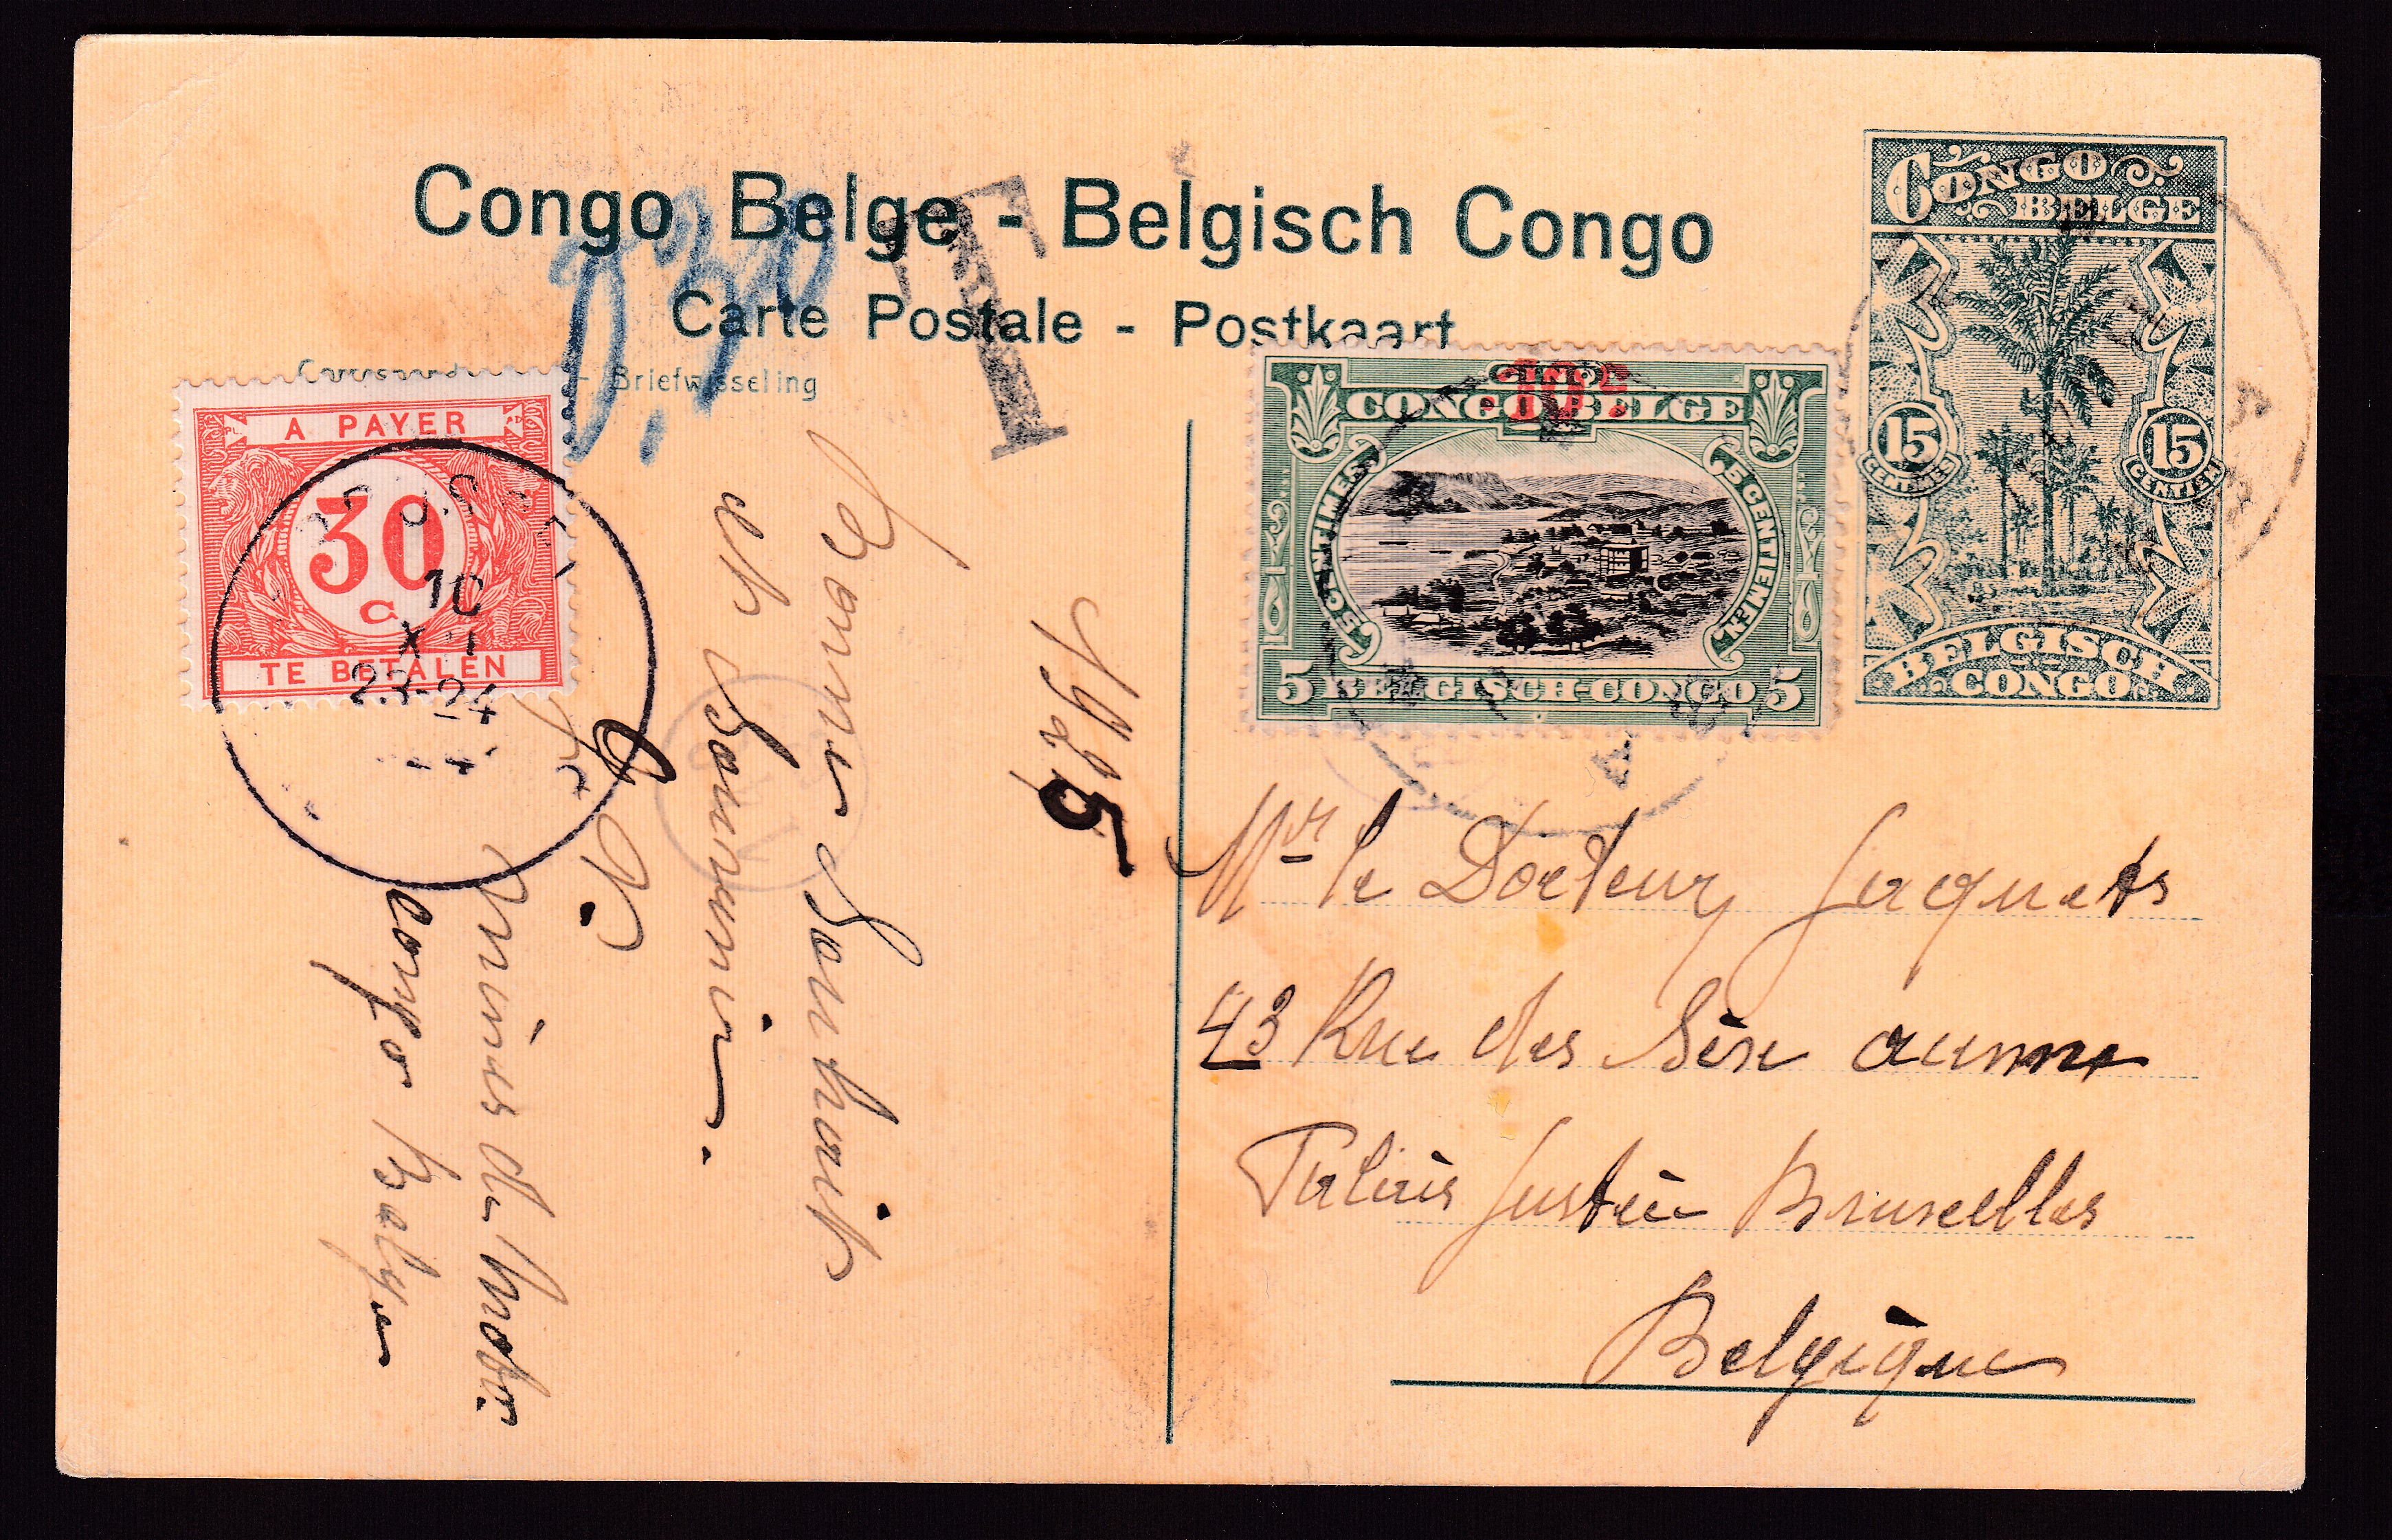 Congo Belge - Belgisch Congo
Carte Postale - Postkaart
- Briefwisseling
0,30
T
CONGO BELGE
15 CENTIMES
15 CENTIEM
BELGISCH CONGO
10c
CONGO BELGE
5 CENTIMES
5 CENTIEMEN
5 BELGISCH-CONGO 5
A PAYER
30
C.
TE BETALEN
10
23-24
1925
Bonne Souhait
et Souvenir.
Mines de Moto
Congo Belge
Mr le Docteur Jaquets
43 Rue des Sise aumne
Palais Justice Bruxelles
Belgique